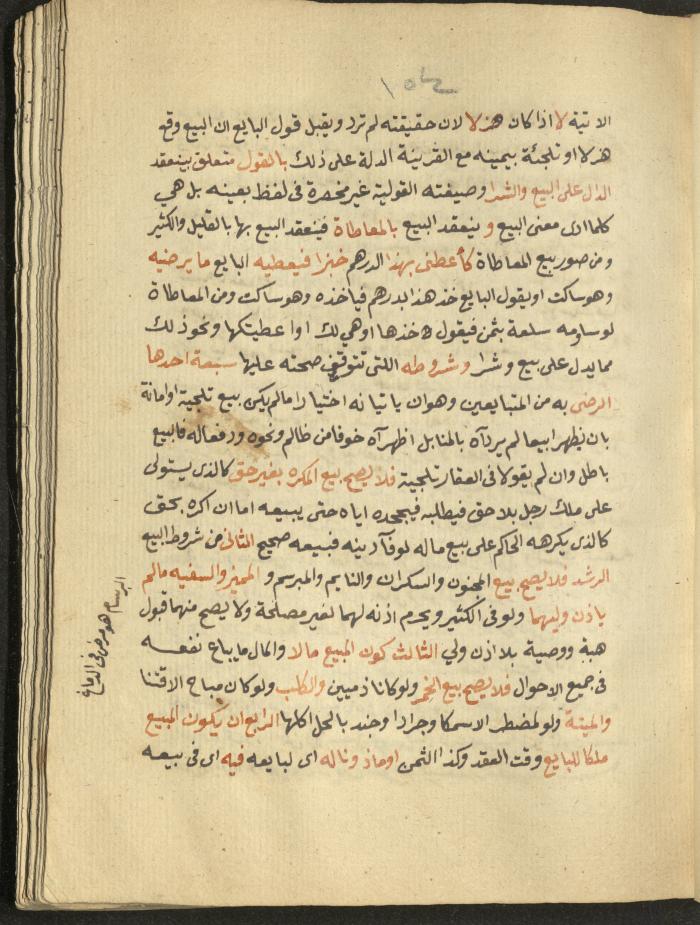 الاتية لا اذا كان هزلا لان حقيقته لم ترد ويقبل قول البايع ان البيع وقع
هزلا او تلجئة بيمينه مع القرينة الدلة على ذلك بالقول متعلق بينعقد
الدال على البيع والشرا وصيغته القولية غير منحصرة فى لفظ بعينه بل هي
كلما ادى معنى البيع و ينعقد البيع بالمعاطاة فينعقد البيع بها بالقليل والكثير
ومن صور بيع المعاطاة كأعطنى بهذا الدرهم خبزا فيعطيه البايع ما يرضيه
وهو ساكت او يقول البايع خذ هذا بدرهم فياخذه وهو ساكت ومن المعاطاة
لو ساومه سلعة بثمن فيقول خذها او هي لك او اعطيتكها ونحو ذلك
مما يدل على بيع وشرا وشروطه اللتى تتوقف صحته عليها سبعة احدها
الرضى به من المتبايعين وهو ان ياتيا نه اختيارا مالم يكن بيع تلجية او امانة
بان يظهرا بيعا لم يردآه بالمنا بل اظهرآه خوفا من ظالم ونحوه ودفعا له فالبيع
باطل وان لم يقولا فى العقد تلجية فلا يصح بيع المكره بغير حق كالذى يستولى
على ملك رجل بلا حق فيطلبه فيجحده اياه حتى يبيعه اما ان اكره بحق
كالذى يكرهه الحاكم على بيع ماله لوفآ دينه فبيعه صحيح الثانى من شروط البيع
الرشد فلا يصح بيع المجنون والسكران والنايم والمبرسم و المميز والسفيه مالم
ياذن وليهما ولو فى الكثير ويحرم اذنه لهما لغير مصلحة ولا يصح منهما قبول
هبة ووصية بلا اذن ولي الثالث كون المبيع مالا والمال ما يباع نفعه
فى جميع الاحوال فلا يصح بيع الخمر ولو كانا ذميين والكلب ولو كان مباح الاقتنا
والميتة ولو لمضطر الا سمكا وجرادا وجند بالحل اكلها الرابع ان يكون المبيع
ملكا للبايع وقت العقد وكذا الثمن او ماذونا له اى لبايعه فيه اى فى بيعه
البرسام هو مرض فى الدماغ